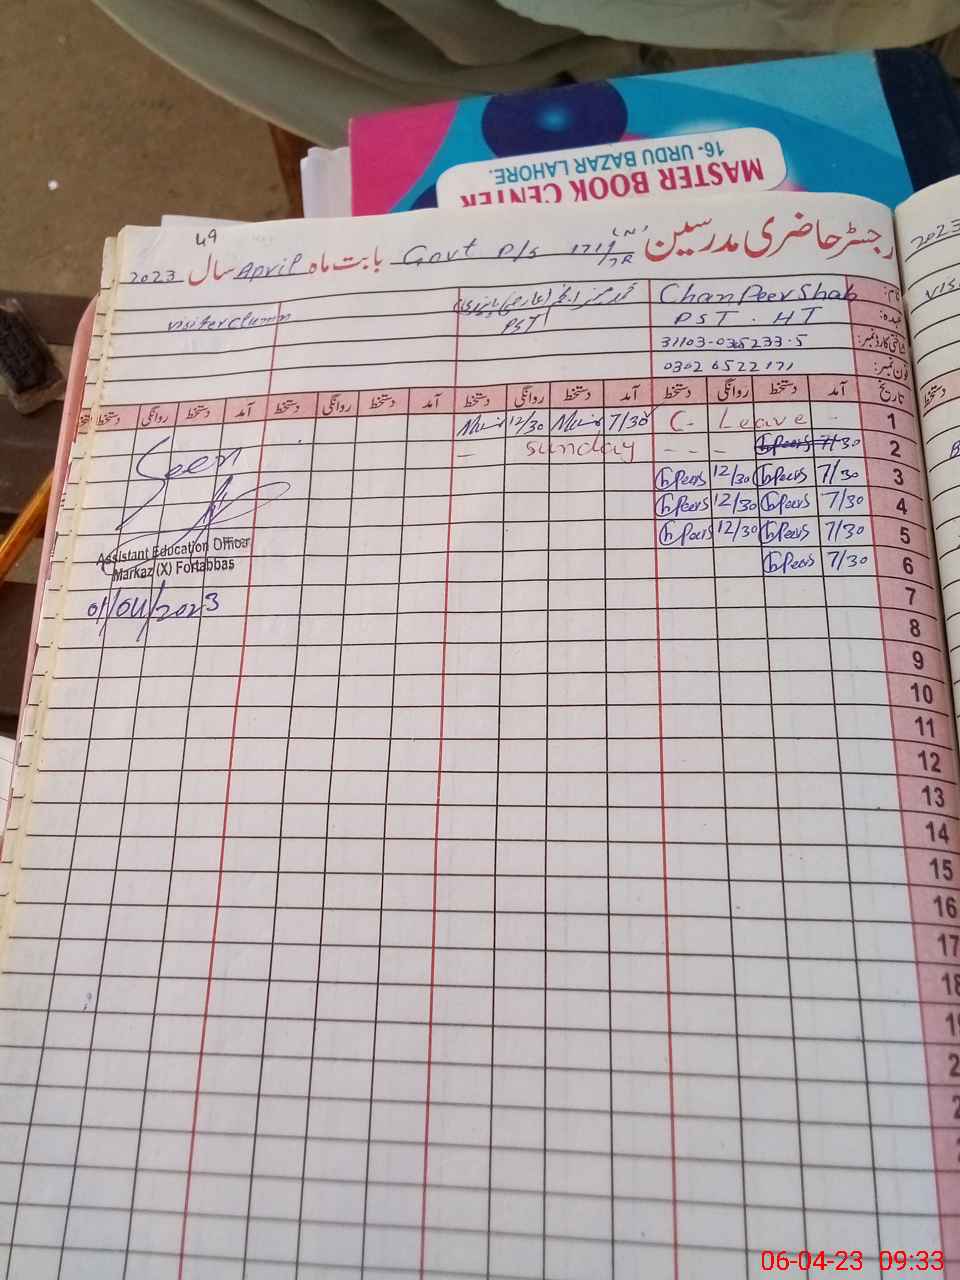 MASTER BOOK CENTER
16- URDU BAZAR LAHORE.
49
رجسٹر حاضری مدرسین Govt P/S 171/7R بابت ماہ April سال 2023
نام: Chan Peer Shah
عہدہ: PST . HT
PST
شناختی کارڈ نمبر:
فون نمبر: 0302 6522171
visiter clumn
تاریخ آمد دستخط روانگی دستخط آمد دستخط روانگی دستخط آمد دستخط روانگی دستخط آمد دستخط روانگی دستخط
1 C- Leave - 7/30 12/30
2 7/30 - - - Sunday -
3 7/30 12/30
4 7/30 12/30
5 7/30 12/30
6 7/30
7
8
9
10
11
12
13
14
15
16
17
18
Seen
Assistant Education Officer
Markaz (X) Fortabbas
01/04/2023
2023
06-04-23 09:33